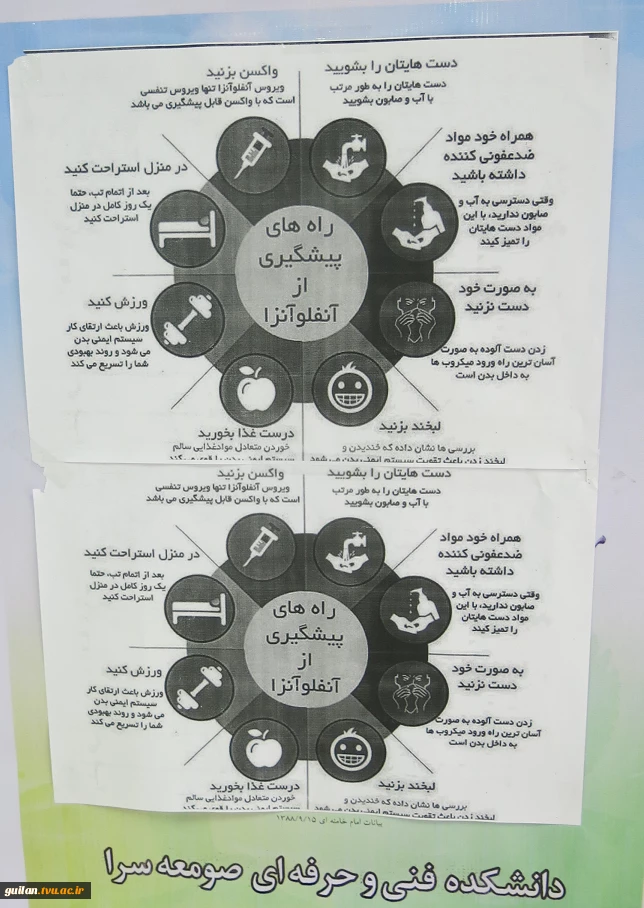 دست هایتان را بشویید
دست هایتان را به طور مرتب
با آب و صابون بشویید
واکسن بزنید
ویروس آنفلوآنزا تنها ویروس تنفسی
است که با واکسن قابل پیشگیری می باشد
همراه خود مواد
ضدعفونی کننده
داشته باشید
وقتی دسترسی به آب و
صابون ندارید، با این
مواد دست هایتان
را تمیز کیند
در منزل استراحت کنید
بعد از اتمام تب، حتما
یک روز کامل در منزل
استراحت کنید
راه های
پیشگیری
از
آنفلوآنزا
به صورت خود
دست نزنید
زدن دست آلوده به صورت
آسان ترین راه ورود میکروب ها
به داخل بدن است
ورزش کنید
ورزش باعث ارتقای کار
سیستم ایمنی بدن
می شود و روند بهبودی
شما را تسریع می کند
لبخند بزنید
بررسی ها نشان داده که خندیدن و
لبخند زدن باعث تقویت سیستم ایمنی بدن می شود
درست غذا بخورید
خوردن متعادل موادغذایی سالم
سیستم ایمنی بدن را قوی می کند
دست هایتان را بشویید
دست هایتان را به طور مرتب
با آب و صابون بشویید
واکسن بزنید
ویروس آنفلوآنزا تنها ویروس تنفسی
است که با واکسن قابل پیشگیری می باشد
همراه خود مواد
ضدعفونی کننده
داشته باشید
وقتی دسترسی به آب و
صابون ندارید، با این
مواد دست هایتان
را تمیز کیند
در منزل استراحت کنید
بعد از اتمام تب، حتما
یک روز کامل در منزل
استراحت کنید
راه های
پیشگیری
از
آنفلوآنزا
به صورت خود
دست نزنید
زدن دست آلوده به صورت
آسان ترین راه ورود میکروب ها
به داخل بدن است
ورزش کنید
ورزش باعث ارتقای کار
سیستم ایمنی بدن
می شود و روند بهبودی
شما را تسریع می کند
لبخند بزنید
بررسی ها نشان داده که خندیدن و
لبخند زدن باعث تقویت سیستم ایمنی بدن می شود
درست غذا بخورید
خوردن متعادل موادغذایی سالم
سیستم ایمنی بدن را قوی می کند
بیانات امام خامنه ای ۱۳۸۸/۹/۱۵
دانشکده فنی و حرفه ای صومعه سرا
guilan.tvu.ac.ir